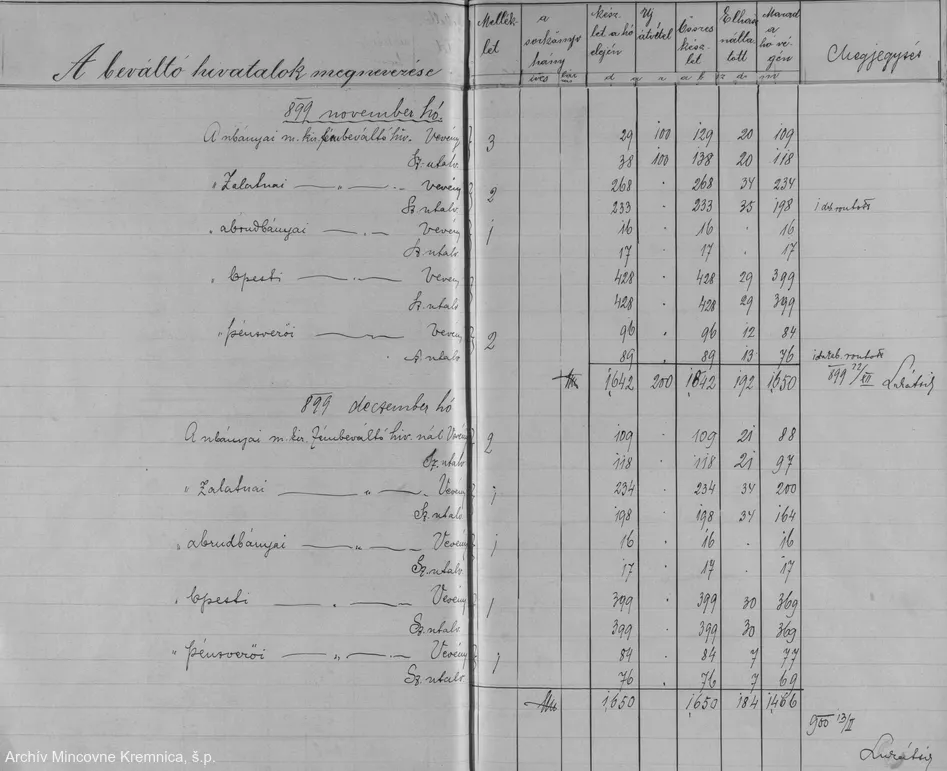 A beváltó hivatalok megnevezése
Mellék let
a sorkönyv hány íves
Kész let a hó elején
Uj átvétel
Összes kész let
Elhasz nálta tott
Marad a hó vé gén
Megjegyzés
d a r a b s z á m
899 november hó.
A nbányai m. kir. fémbeváltó hiv. Vevény 3 29 100 129 20 109
Sz. utalv. 38 100 138 20 118
" Zalatnai — " — Vevény 2 268 . 268 34 234
Sz. utalv. 233 . 233 35 198
" abrudbányai — " — Vevény 1 16 . 16 . 16
Sz. utalv. 17 . 17 . 17
" bpesti — " — Vevény 428 . 428 29 399
Sz. utalv. 428 . 428 29 399
" pénzverői Vevény 2 96 . 96 12 84
Sz. utalv. 89 . 89 13 76
1642 200 1842 192 1650 899 12/XII
899 deczember hó
A nbányai m. kir. fémbeváltó hiv. nál Vevény 2 109 . 109 21 88
Sz. utalv. 118 . 118 21 97
" Zalatnai — " — Vevény 1 234 . 234 34 200
Sz. utalv. 198 . 198 34 164
" abrudbányai — " — Vevény 1 16 . 16 . 16
Sz. utalv. 17 . 17 . 17
" bpesti — " — Vevény 1 399 . 399 30 369
Sz. utalv. 399 . 399 30 369
" pénzverői — " — Vevény 1 84 . 84 7 77
Sz. utalv. 76 . 76 7 69
1650 1650 184 1466
900 13/II
Archív Mincovne Kremnica, š.p.